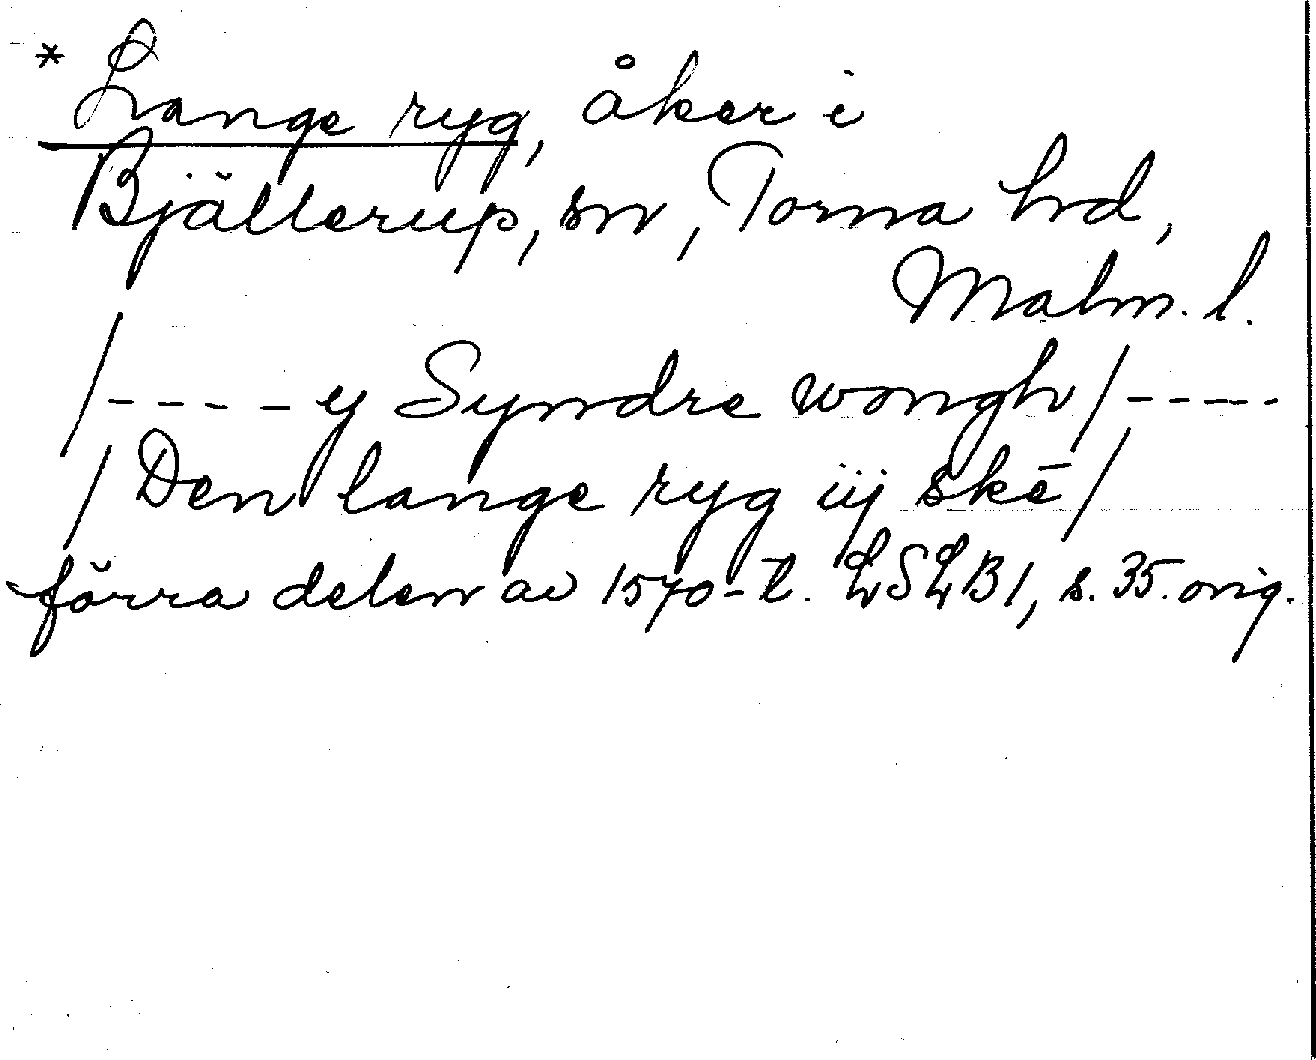 * Lange ryg, åker i
Bjällerup, sn, Torna hd,
Malm. l.
/----y Syndre wongh/----
/Den lange ryg iij skē/
förra delen av 1570-t. LSLB1, s. 35. orig.